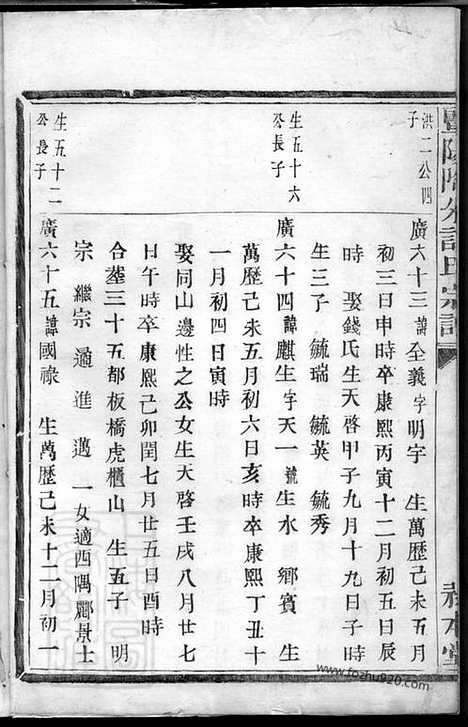 洪二公四子
廣六十三諱全義字明宇 生萬歷己未五月
初三日申時卒康熙丙寅十二月初五日辰
時 娶錢氏生天啓甲子九月十九日子時
生三子 毓瑞 毓英 毓秀
生五十六公長子
廣六十四諱麒生字天一號生水 鄉賓 生
萬歷己未五月初六日亥時卒康熙丁丑十
一月初四日寅時
娶同山邊性之公女生天啓壬戌八月廿七
日午時卒康熙己卯閏七月廿五日酉時
合葬三十五都板橋虎櫃山 生五子 明
宗 繼宗 遹進 邁 一女適西隅酈景士
生五十二公長子
廣六十五諱國祿 生萬歷己未十二月初一
www.fozhu920.com